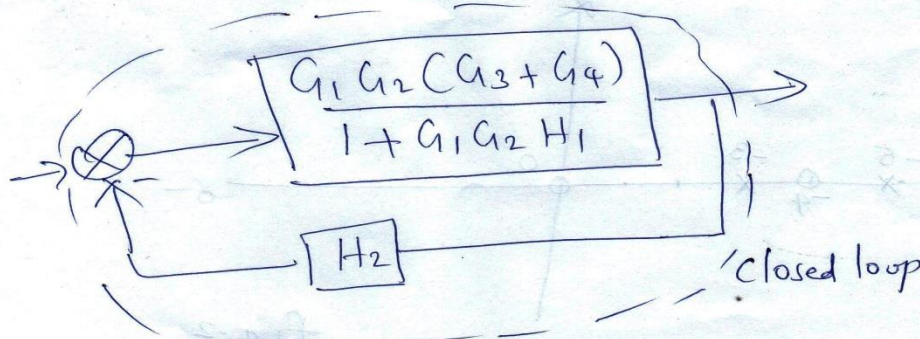 G1 G2 (G3 + G4)
1 + G1 G2 H1
-
H2
Closed loop